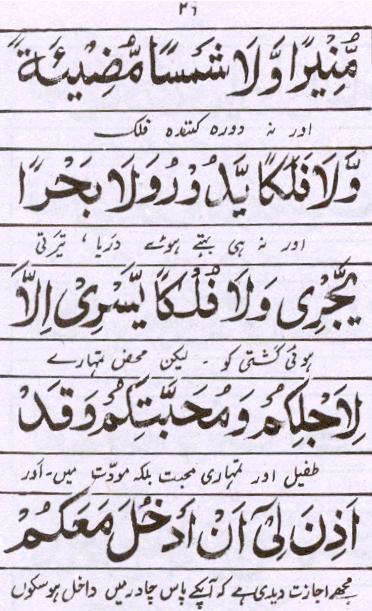 ۲۶
مُّنِيْرًا وَّلَا شَمْسًا مُّضِيْئَةً
اور نہ دورہ کنندہ فلک
وَّلَا فَلَكًا يَّدُوْرُ وَلَا بَحْرًا
اور نہ ہی بہتے ہوئے دریا ، تیرتی
يَّجْرِيْ وَلَا فُلْكًا يَّسْرِيْ اِلَّا
ہوئی کشتی کو ۔ لیکن محض تمہارے
لِاَجْلِكُمْ وَمُحَبَّتِكُمْ وَقَدْ
طفیل اور تمہاری محبت بلکہ مودّت میں ۔ اور
اَذِنَ لِيْٓ اَنْ اَدْخُلَ مَعَكُمْ
مجھے اجازت دیدی ہے کہ آپکے پاس چادر میں داخل ہو سکوں